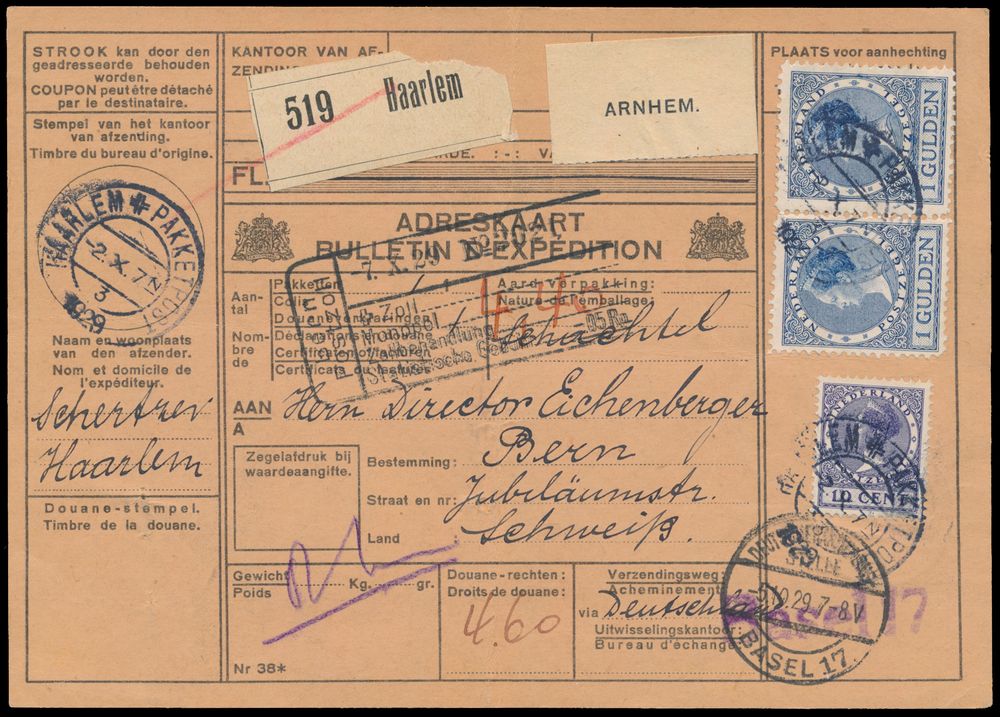 STROOK kan door den
geadresseerde behouden
worden.
COUPON peut être détaché
par le destinataire.
Stempel van het kantoor
van afzending.
Timbre du bureau d'origine.
HAARLEM PAKKETPOST
-2.X.7N
3
1929
Naam en woonplaats
van den afzender.
Nom et domicile de
l'expéditeur.
Haarlem
Douane-stempel.
Timbre de la douane.
KANTOOR VAN AF-
ZENDING
519 Haarlem
ARNHEM.
PLAATS voor aanhechting
NEDERLAND
POSTZEGEL
1 GULDEN
NEDERLAND
POSTZEGEL
1 GULDEN
ADRESKAART
BULLETIN D'EXPÉDITION
-7.X.29
Aan-
tal
Nom-
bre
de
Pakketten
Colis
Douaneverklaringen
Déclarations en douane
Certificaten/facturen
Certificats ou factures
Aard verpakking:
Nature de l'emballage:
Schachtel
Zoll
Monopol
Zollbehandlung
Statistische Gebühr
AAN
A
Herrn Director Eichenberger
Zegelafdruk bij
waardeaangifte.
Bestemming: Bern
Straat en nr: Jubiläumstr.
Land Schweiß
NEDERLAND
10 CENT
Gewicht
Poids
Kg. gr.
Douane-rechten:
Droits de douane:
4.60
Verzendingsweg:
Acheminement
via Deutschland
Uitwisselingskantoor:
Bureau d'échange
Basel 17
-5.10.29.7-8V
BASEL 17.
Nr 38*